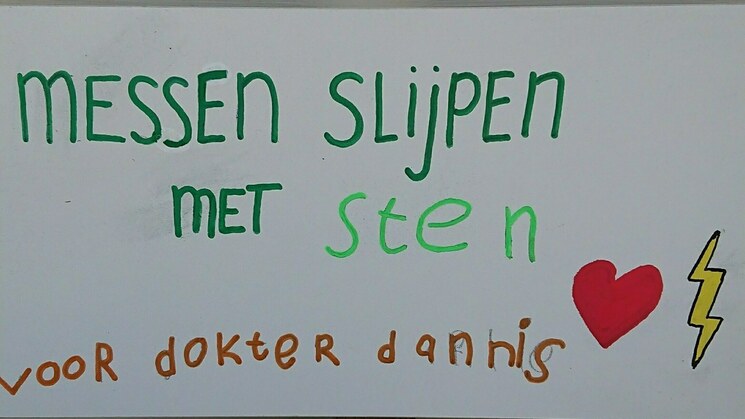 MESSEN SLIJPEN
MET Sten
VOOR dokTER dannis